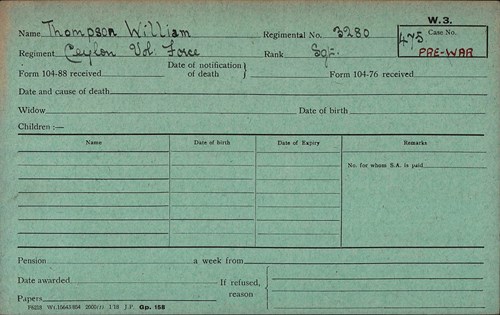 W.3.
Name Thompson William Regimental No. 3280 Case No. 475
Regiment Ceylon Vol. Force Rank Sgt. PRE-WAR
Form 104-88 received Date of notification of death Form 104-76 received
Date and cause of death
Widow Date of birth
Children :—
Name Date of birth Date of Expiry Remarks
No. for whom S.A. is paid
Pension a week from
Date awarded If refused, reason
Papers
Gp. 158